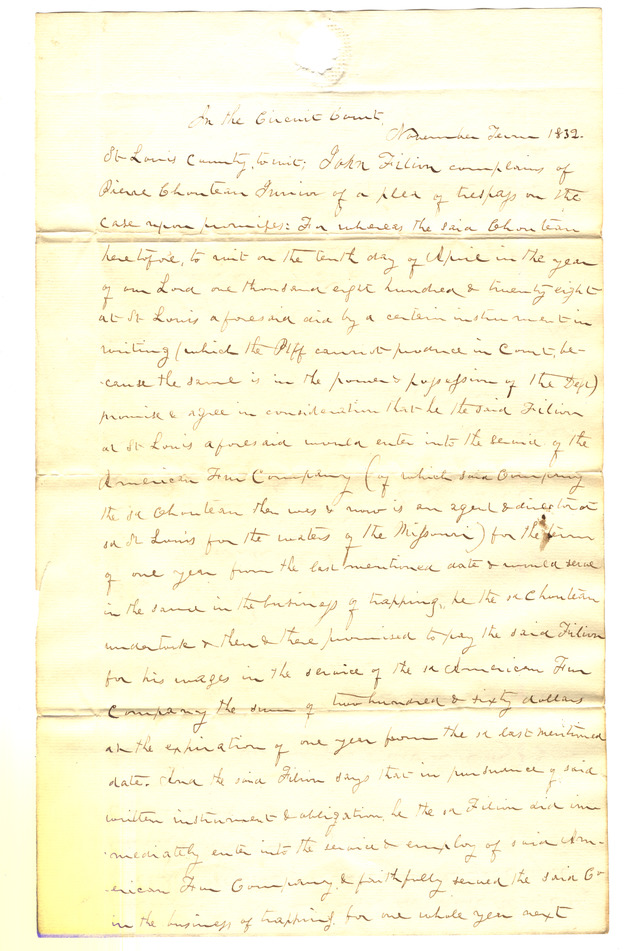 In the Circuit Court,
November Term 1832.
St Louis County, to wit; John Filion complains of
Pierre Chouteau Junior of a plea of trespass on the
case upon promises: For whereas the said Chouteau
heretofore, to wit on the tenth day of April in the year
of our Lord one thousand eight hundred & twenty eight
at St Louis aforesaid did by a certain instrument in
writing (which the Plff cannot produce in Court, be-
-cause the same is in the power & possession of the Deft)
promise & agree in consideration that he the said Filion
at St Louis aforesaid would enter into the service of the
American Fur Company (of which said Company
the sd Chouteau then was & now is an agent & director at
sd St Louis for the waters of the Missouri) for the term
of one year from the last mentioned date & would serve
in the same in the business of trapping, he the sd Chouteau
undertook & then & there promised to pay the said Filion
for his wages in the service of the sd American Fur
Company the sum of two hundred & sixty dollars
at the expiration of one year from the sd last mentioned
date. And the said Filion says that in pursuance of said
written instrument & obligation, he the sd Filion did im-
-mediately enter into the service & employ of said Am-
-erican Fur Company, & faithfully served the said Co
in the business of trapping, for one whole year next